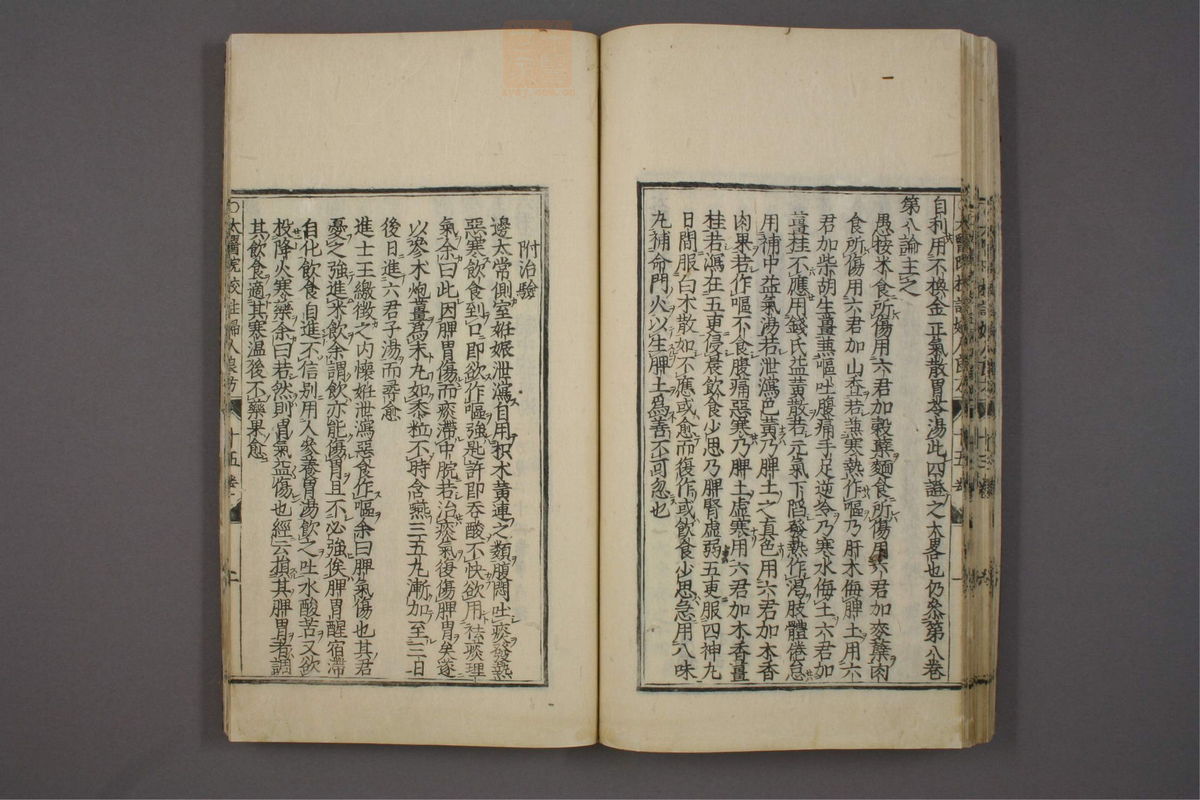 自利用不換金正氣散胃苓湯此四證之大畧也仍叅第八巻
第八論主之
愚按米食所傷用六君加穀蘖麵食所傷用六君加麥蘖肉
食所傷用六君加山查若兼寒熱作嘔乃肝木侮脾土用六
君加柴胡生薑兼嘔吐腹痛手足逆冷乃寒水侮土六君加
薑桂不應用錢氏益黄散若元氣下陷發熱作渴肢體倦怠
用補中益氣湯若泄瀉色黄乃脾土之真色用六君加木香
肉果若作嘔不食腹痛惡寒乃脾土虚寒用六君加木香薑
桂若瀉在五更侵晨飲食少思乃脾腎虚弱五更服四神丸
日間服白木散如不應或愈而復作或飲食少思急用八味
丸補命門火以生脾土爲善不可忽也
附治驗
邊太常側室姙娠泄瀉自用枳木黄連之類腹悶吐痰發熱
惡寒飲食到口即欲作嘔強匙許即吞酸不快欲用祛痰理
氣余曰此因脾胃傷而痰滯中脘若治痰氣復傷脾胃矣遂
以參木炮薑爲末丸如黍粒不時含嚥三五丸漸加至三日
後日進六君子湯而尋愈
進士王繳徴之内懷姙泄瀉惡食作嘔余曰脾氣傷也其君
憂之強進米飲余謂飲亦能傷胃且不必強俟脾胃醒宿滯
自化飲食自進不信别用人參養胃湯飲之吐水酸苦又欲
投降火寒藥余曰若然則胃氣益傷也經云損其脾胃者調
其飲食適其寒温後不藥果愈
○太醫院校註婦人良方 十五巻 二